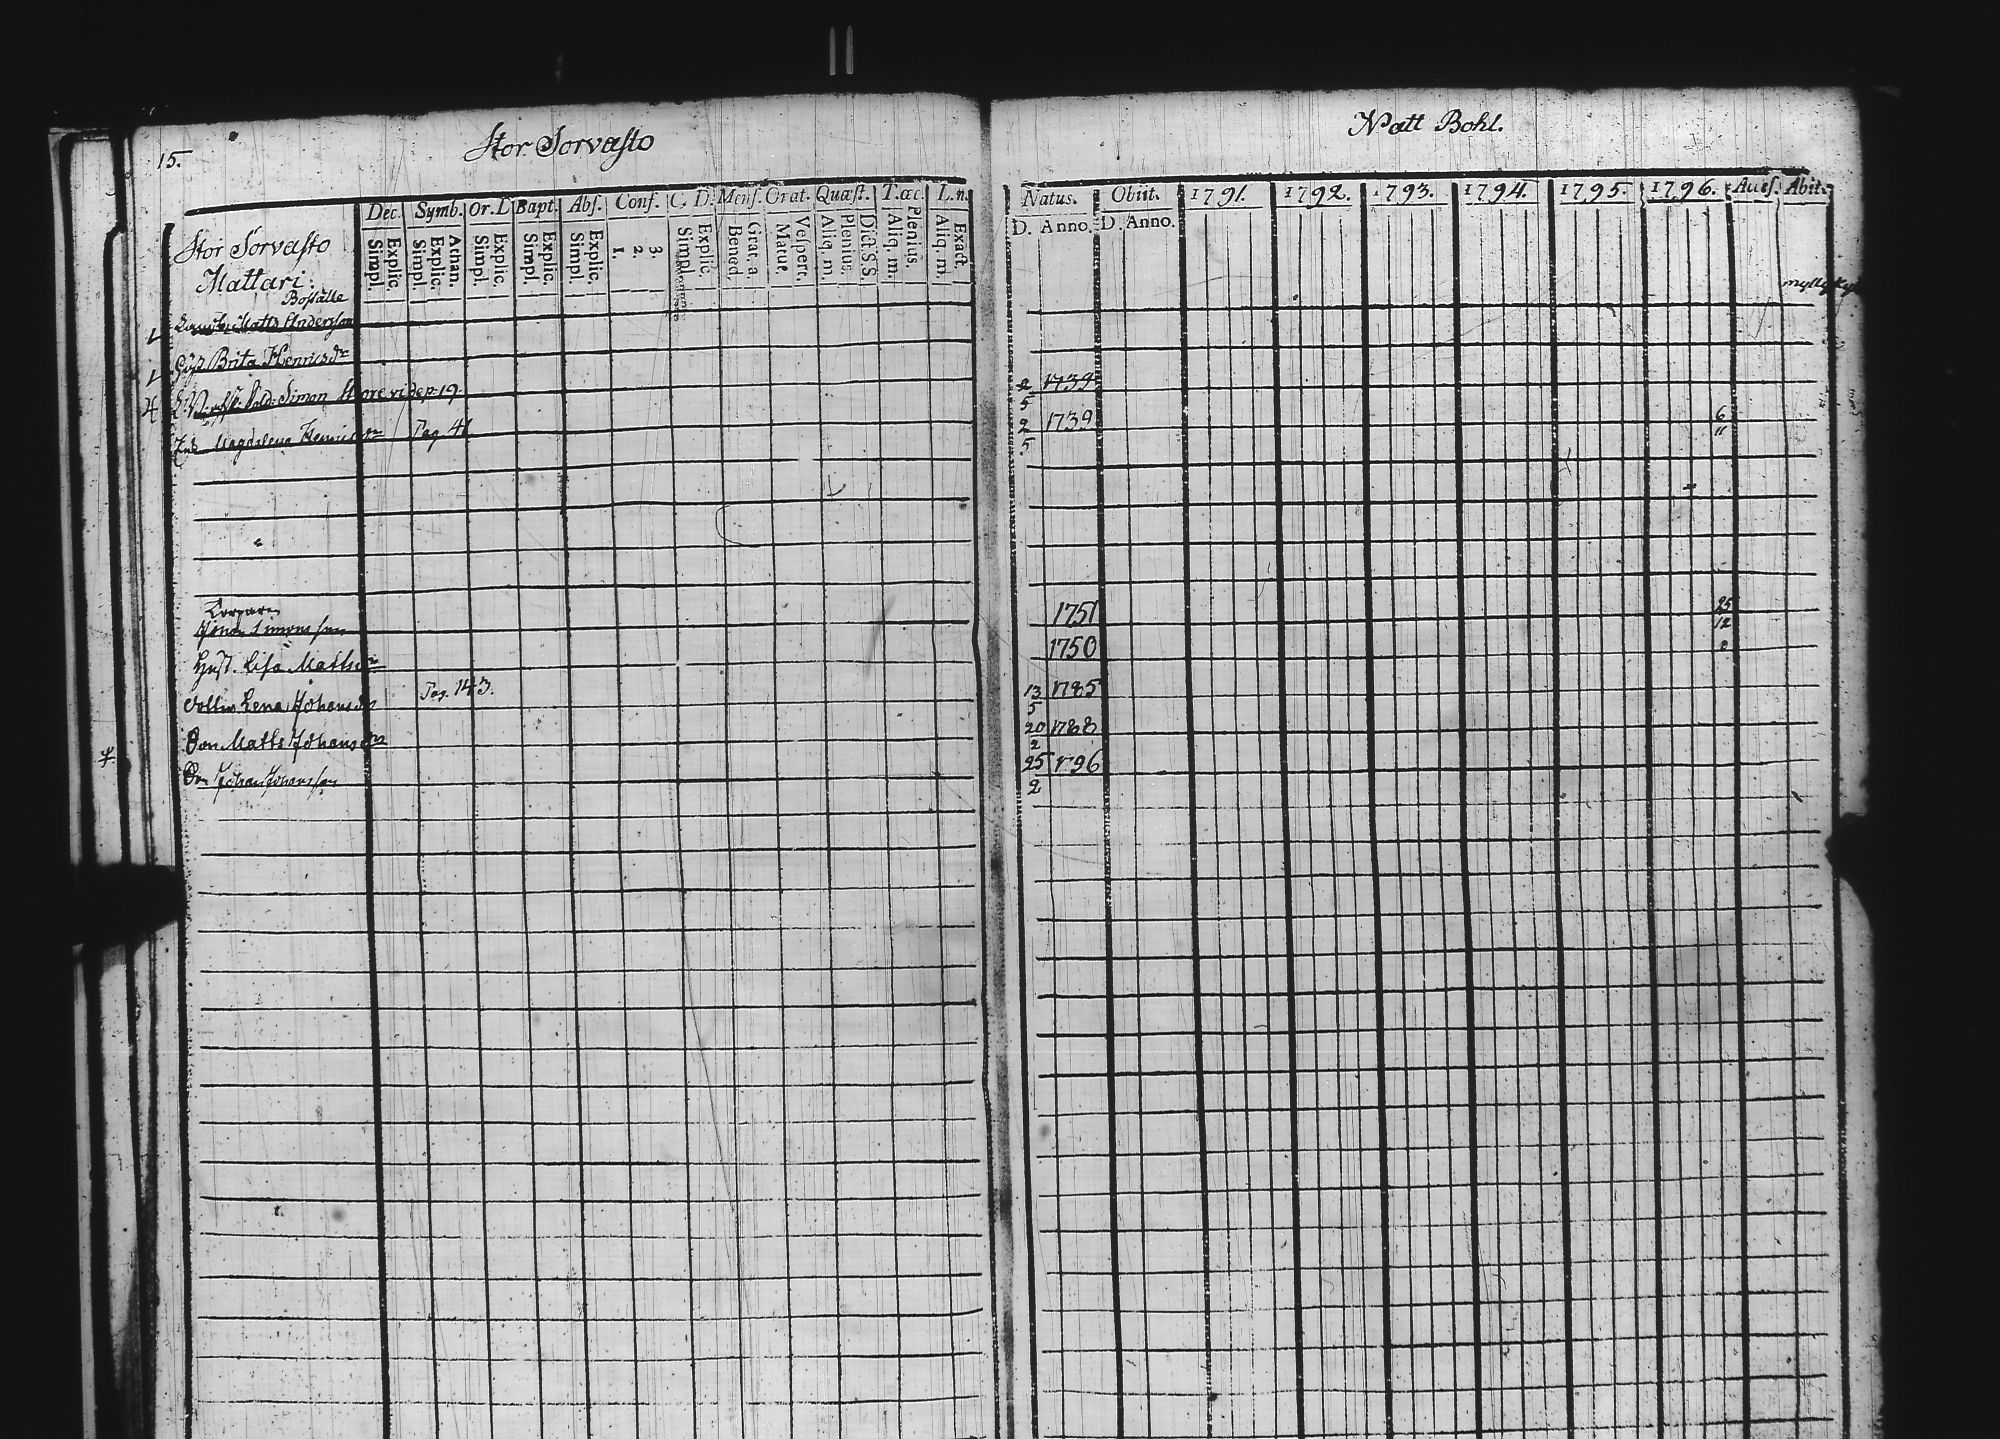 15.
Stor Sorvasto
Natt Bohl.
Dec. Symb. Or. D Bapt. Abs. Conf. C. D. Mens. Orat. Quæst. T. œc. L. n.
Natus. Obiit. 1791. 1792. 1793. 1794. 1795. 1796. Acces. Abit.
Explic. Simpl. Athan. Explic. Simpl. Explic. Simpl. Explic. Simpl. Explic. Simpl. 1. 2. 3. Explic. Simpl. Grat. a. Bened. Vespert. Matut. Aliq. m. Plenius. Dict. S. S. Aliq. m. Plenius. Exact. Aliq. m.
D. Anno. D. Anno.
Stor Sorvasto
Mattari:
Boställe
Matts Andersson
Brita Henricsdr
Simon vide p. 19. 2 5 1739
Magdalena Henricsdr Pag. 41 2 5 1739 6 11
Simonsson 1751 25 12
Hust. Lisa Mattsdr 1750
Pag. 143.
Lena Johansdr 13 5 1785
Son Matts Johansson 20 2 1788
Son Johan Johansson 25 2 1796